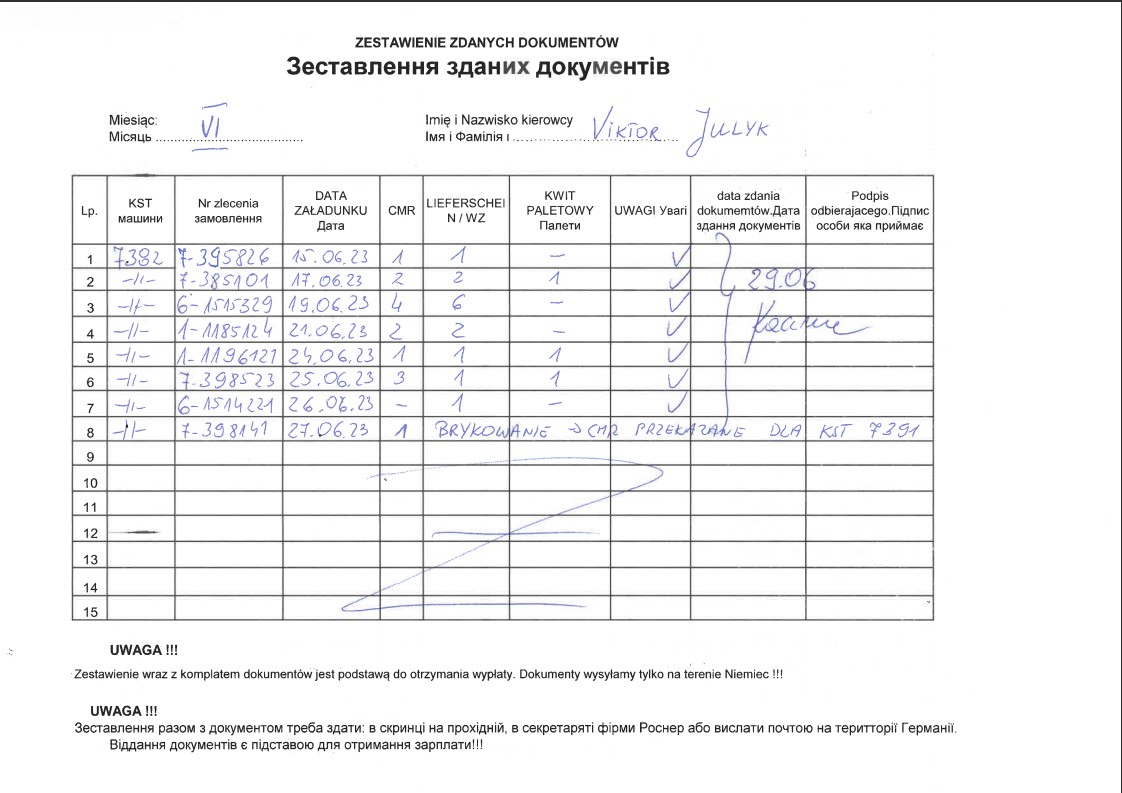 ZESTAWIENIE ZDANYCH DOKUMENTÓW
Зеставлення зданих документів
Miesiąc: Imię i Nazwisko kierowcy
Місяць VI Імя і Фамілія VIKTOR JULYK
Lp. KST машини Nr zlecenia замовлення DATA ZAŁADUNKU Дата CMR LIEFERSCHEIN / WZ KWIT PALETOWY Палети UWAGI Уваги data zdania dokumemtów.Дата здання документів Podpis odbierajacego.Підпис особи яка приймає
1 7382 7-395826 15.06.23 1 1 – ✓
2 -//- 7-385101 17.06.23 2 2 1 ✓ 29.06
3 -//- 6-1515329 19.06.23 4 6 – ✓
4 -//- 1-1185124 21.06.23 2 2 – ✓
5 -//- 1-1196121 24.06.23 1 1 1 ✓
6 -//- 7-398523 25.06.23 3 1 1 ✓
7 -//- 6-1514221 26.06.23 – 1 – ✓
8 -//- 7-398141 27.06.23 1 BRYKOWANIE → CMR PRZEKAZANE DLA KST 7391
9
10
11
12
13
14
15
UWAGA !!!
Zestawienie wraz z komplatem dokumentów jest podstawą do otrzymania wypłaty. Dokumenty wysyłamy tylko na terenie Niemiec !!!
UWAGA !!!
Зеставлення разом з документом треба здати: в скринці на прохідній, в секретаряті фірми Роснер або вислати почтою на територрії Германії.
Віддання документів є підставою для отримання зарплати!!!